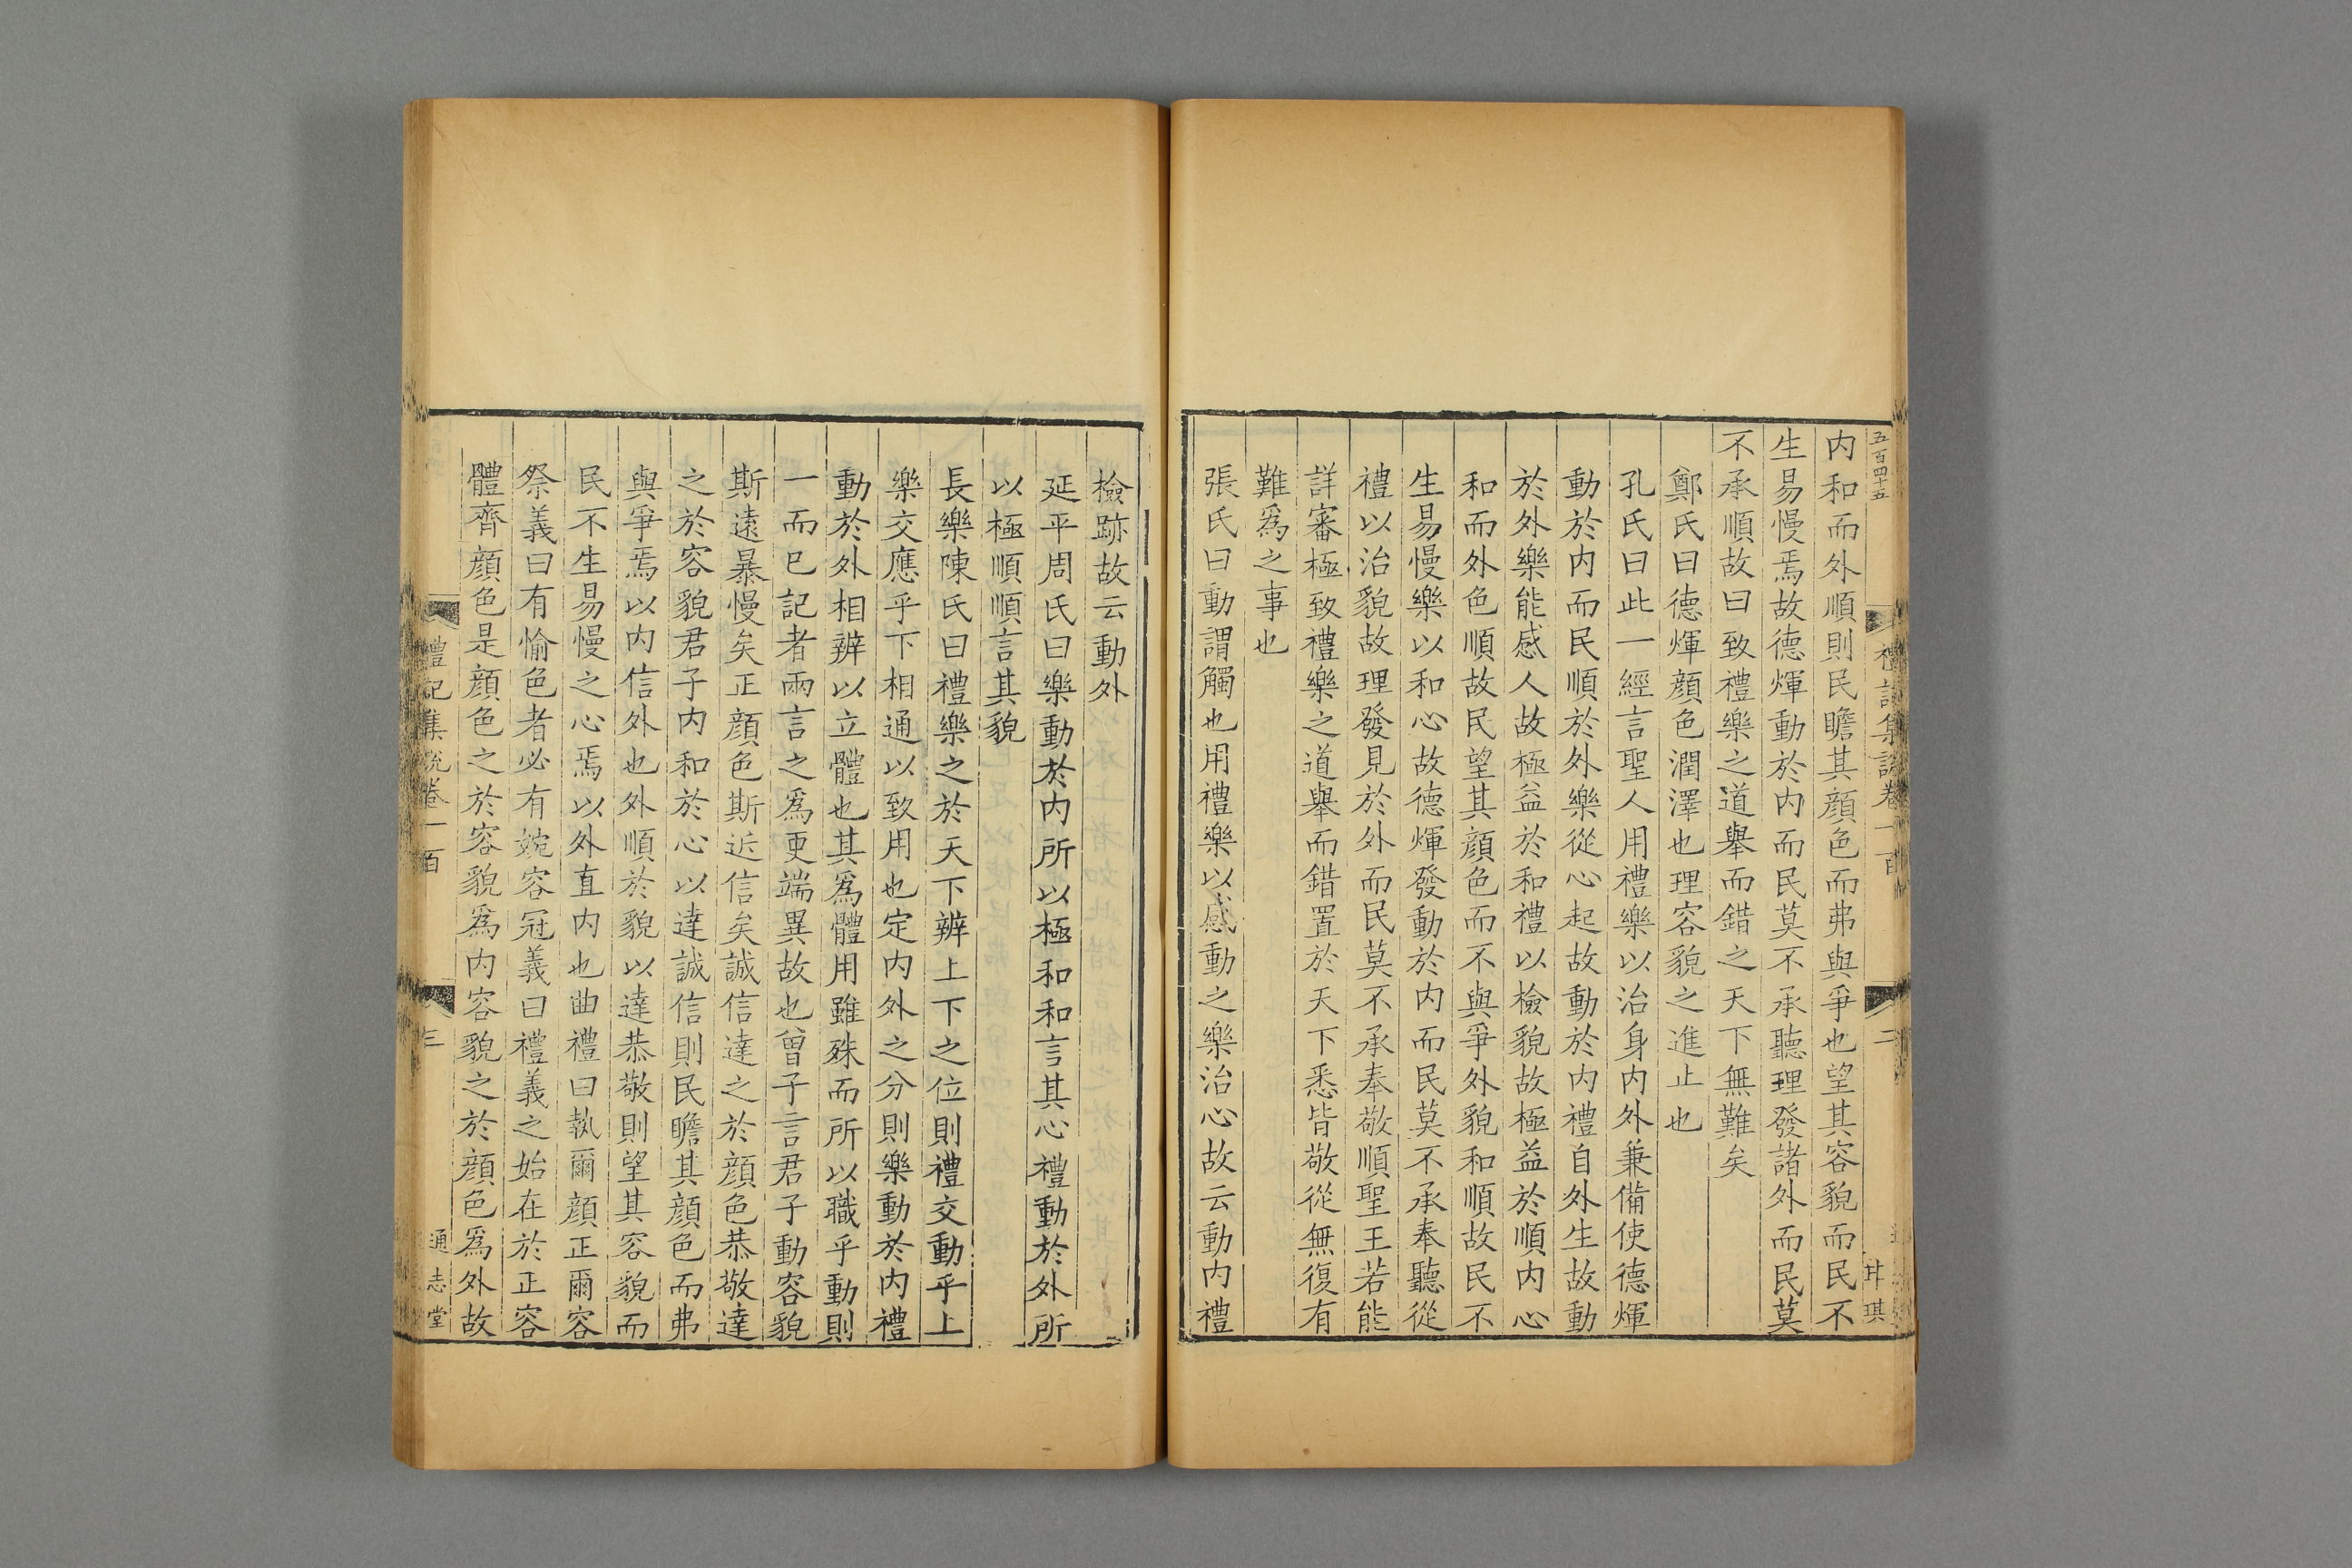 五百四十五
禮記集說卷一百
二
琪
内和而外順則民瞻其顔色而弗與爭也望其容貌而民不
生易慢焉故德煇動於内而民莫不承聽理發諸外而民莫
不承順故曰致禮樂之道舉而錯之天下無難矣
鄭氏曰德煇顔色潤澤也理容貌之進止也
孔氏曰此一經言聖人用禮樂以治身内外兼備使德煇
動於内而民順於外樂從心起故動於内禮自外生故動
於外樂能感人故極益於和禮以檢貌故極益於順内心
和而外色順故民望其顔色而不與爭外貌和順故民不
生易慢樂以和心故德煇發動於内而民莫不承奉聽從
禮以治貌故理發見於外而民莫不承奉敬順聖王若能
詳審極致禮樂之道舉而錯置於天下悉皆敬從無復有
難爲之事也
張氏曰動謂觸也用禮樂以感動之樂治心故云動内禮
檢跡故云動外
延平周氏曰樂動於内所以極和和言其心禮動於外所
以極順順言其貌
長樂陳氏曰禮樂之於天下辨上下之位則禮交動乎上
樂交應乎下相通以致用也定内外之分則樂動於内禮
動於外相辨以立體也其爲體用雖殊而所以職乎動則
一而已記者兩言之爲更端異故也曾子言君子動容貌
斯遠暴慢矣正顔色斯近信矣誠信達之於顔色恭敬達
之於容貌君子内和於心以達誠信則民瞻其顔色而弗
與爭焉以内信外也外順於貌以達恭敬則望其容貌而
民不生易慢之心焉以外直内也曲禮曰執爾顔正爾容
祭義曰有愉色者必有婉容冠義曰禮義之始在於正容
體齊顔色是顔色之於容貌爲内容貌之於顔色爲外故
禮記集說卷一百
三
通志堂